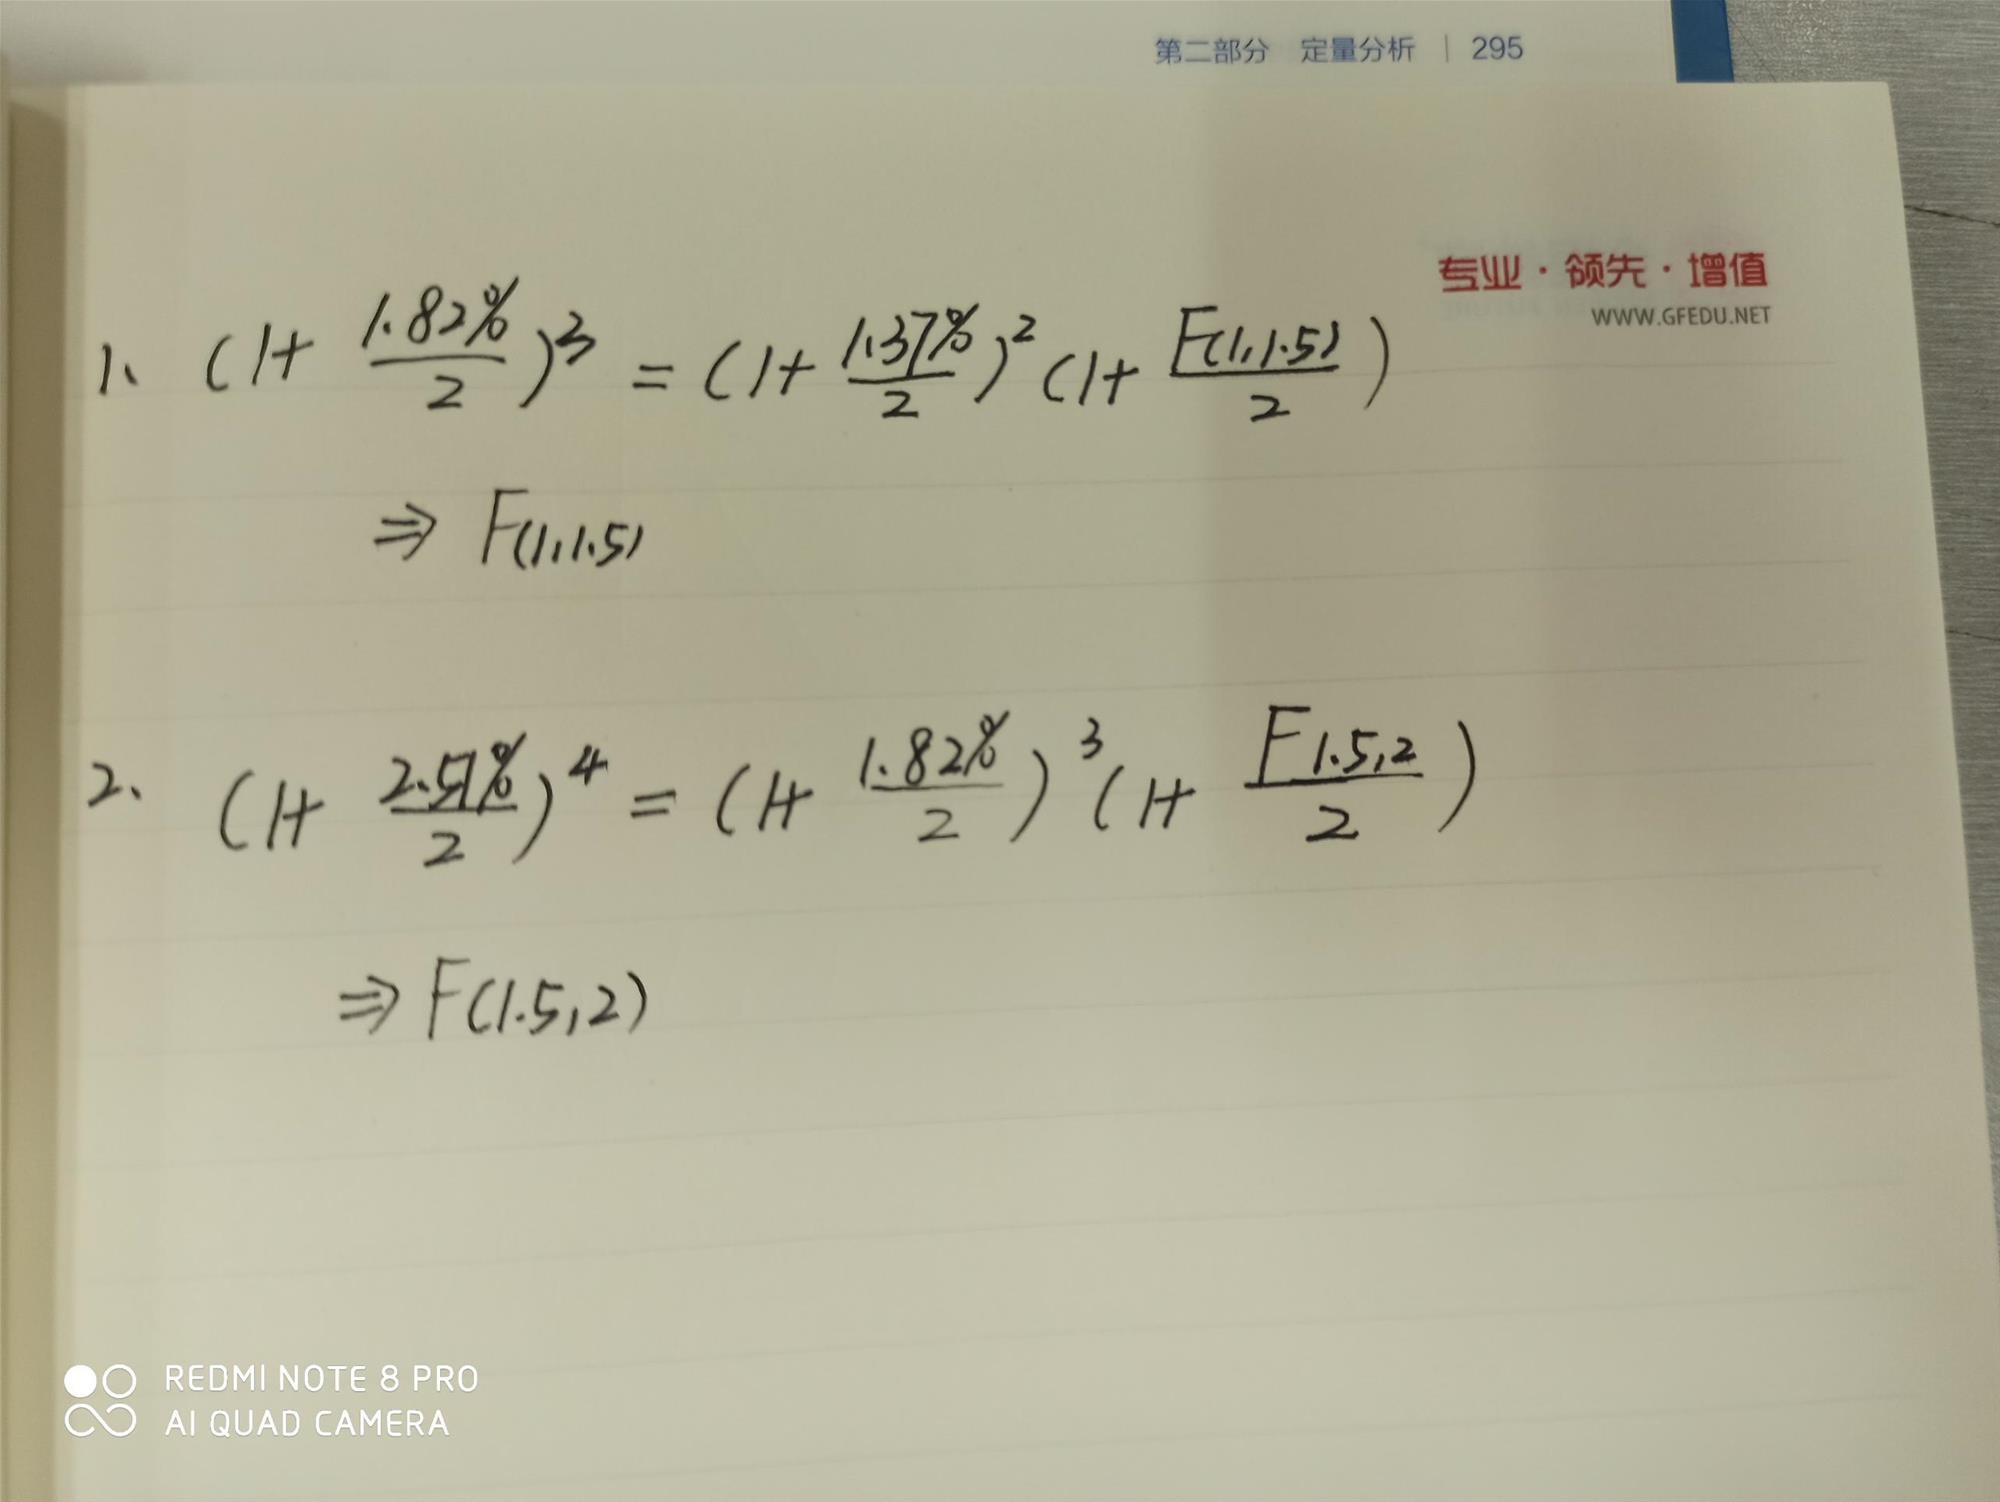 第二部分 定量分析 | 295
专业·领先·增值
WWW.GFEDU.NET
1、 (1+ 1.82%/2)^3 = (1+ 1.37%/2)^2 (1+ F(1,1.5)/2)
⇒ F(1,1.5)
2、 (1+ 2.51%/2)^4 = (1+ 1.82%/2)^3 (1+ F1.5,2/2)
⇒ F(1.5,2)
REDMI NOTE 8 PRO
AI QUAD CAMERA